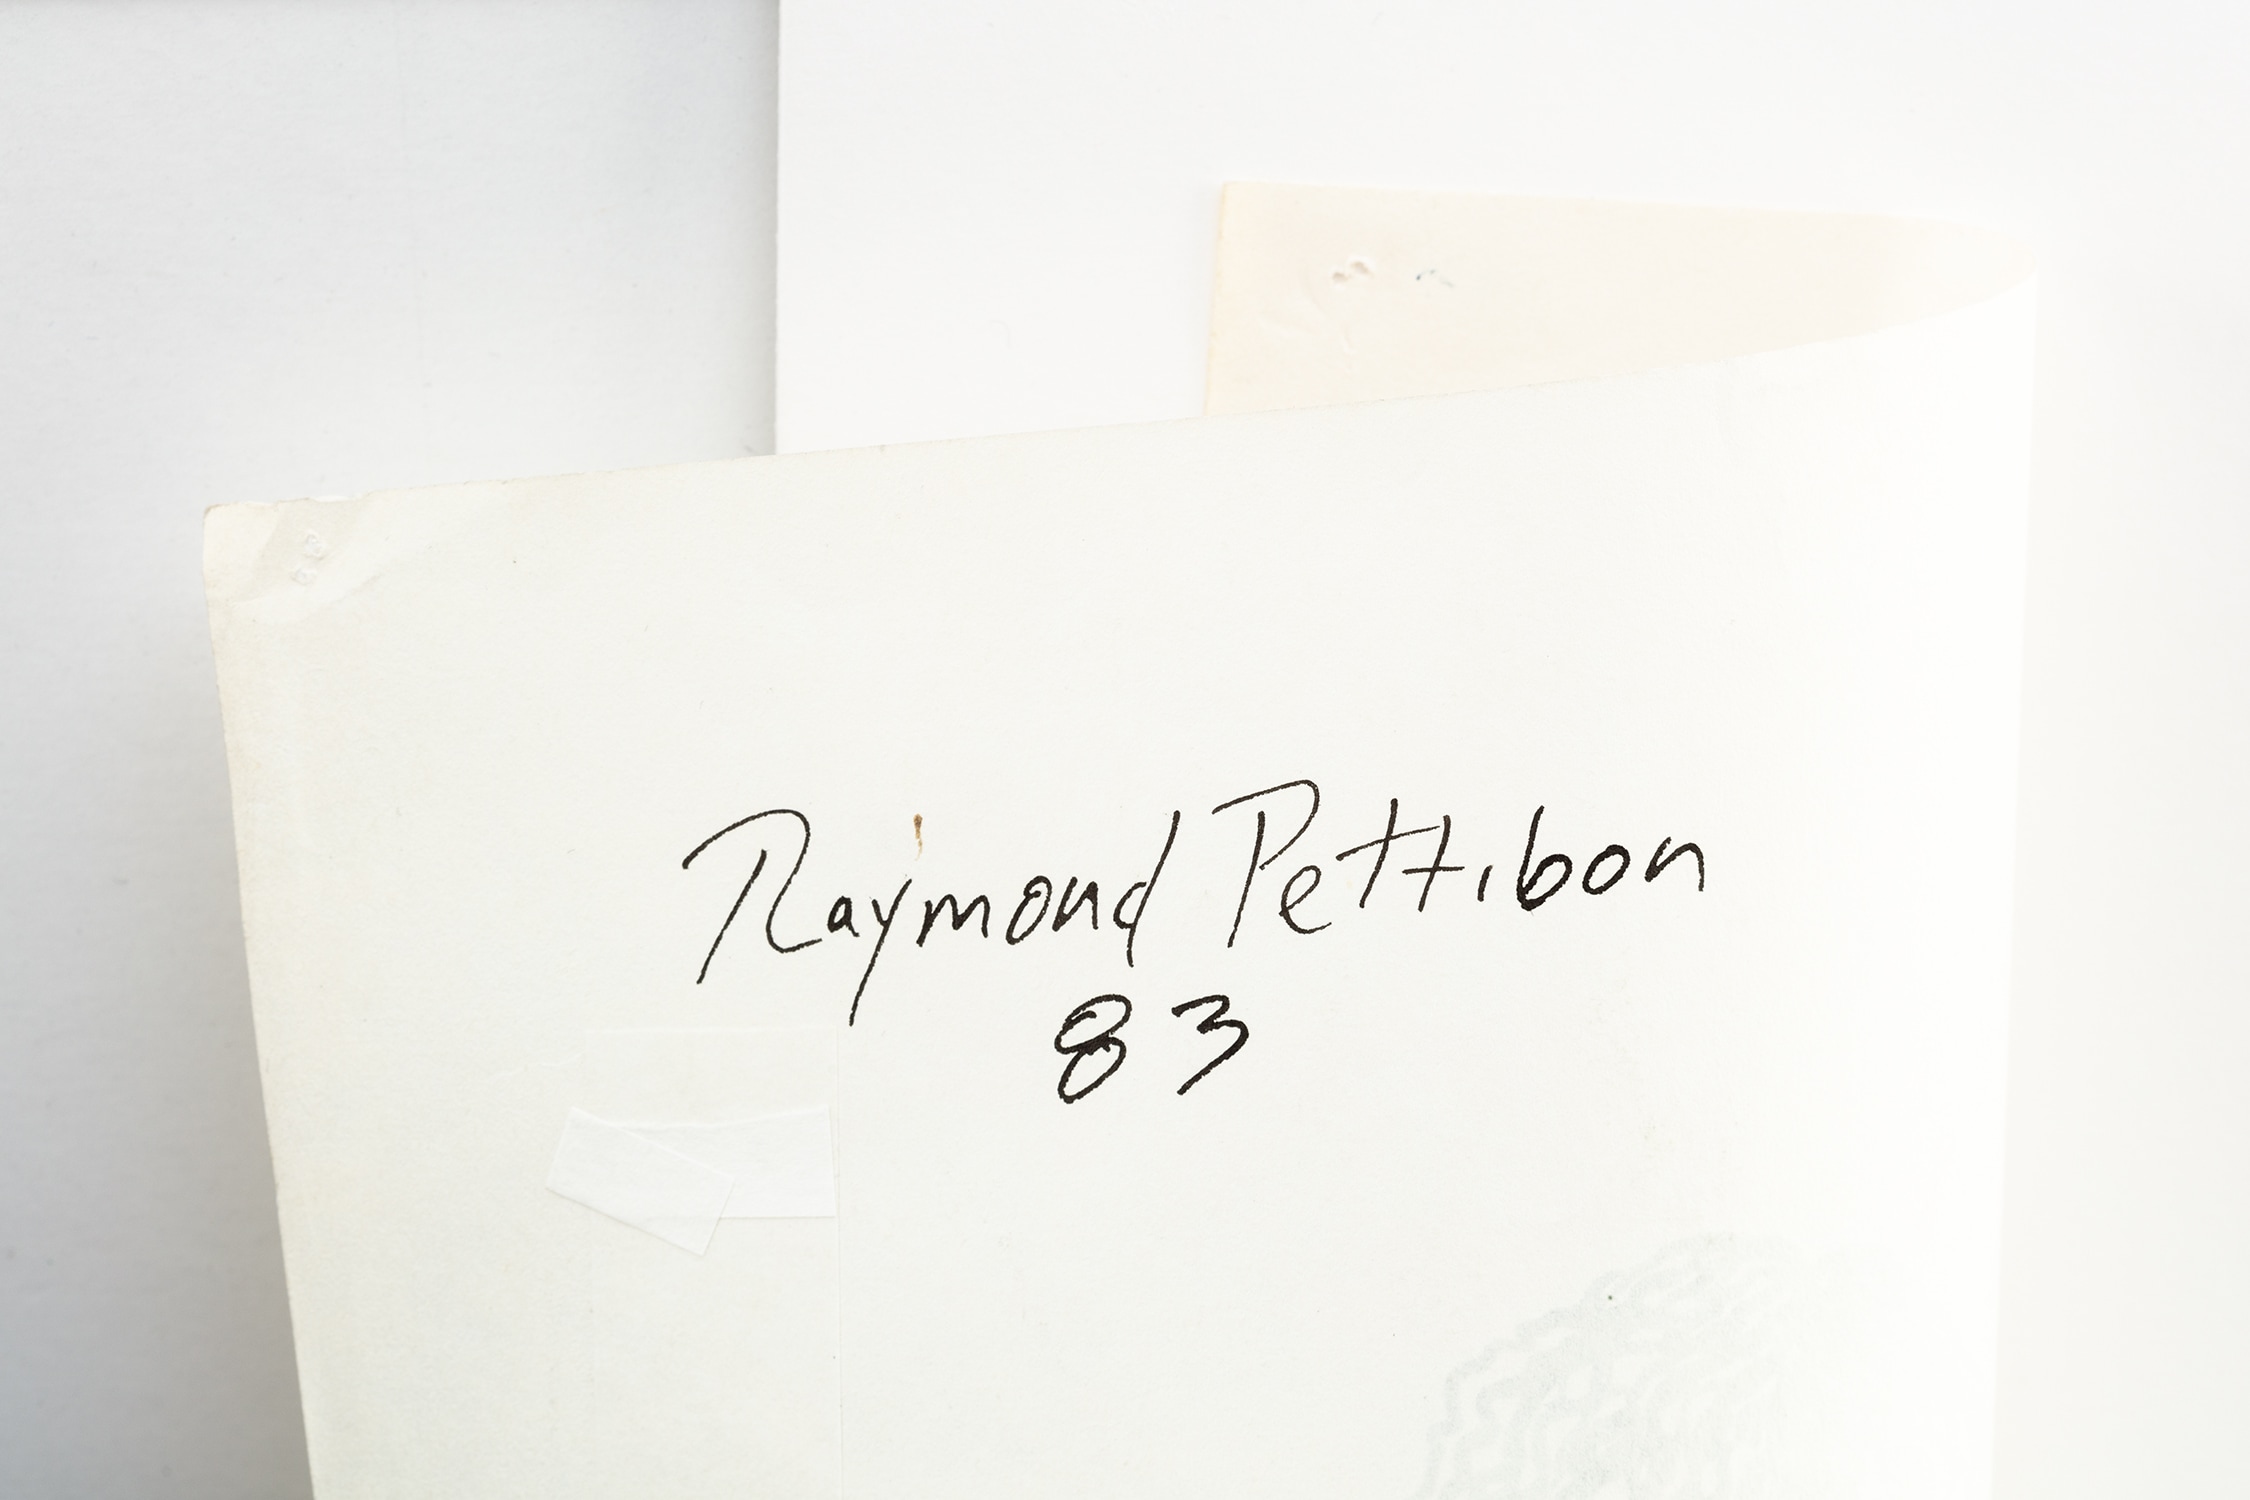 Raymond Pettibon
83